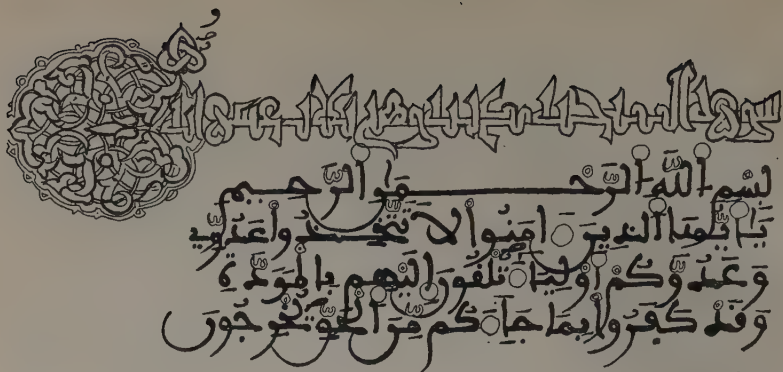 سورة وهي
بِسْمِ اللَّهِ الرَّحْمَٰنِ الرَّحِيمِ
يَا أَيُّهَا الَّذِينَ ءَامَنُوا لَا تَتَّخِذُوا عَدُوِّي
وَعَدُوَّكُمْ أَوْلِيَاءَ تُلْقُونَ إِلَيْهِم بِالْمَوَدَّةِ
وَقَدْ كَفَرُوا بِمَا جَاءَكُم مِّنَ الْحَقِّ يُخْرِجُونَ